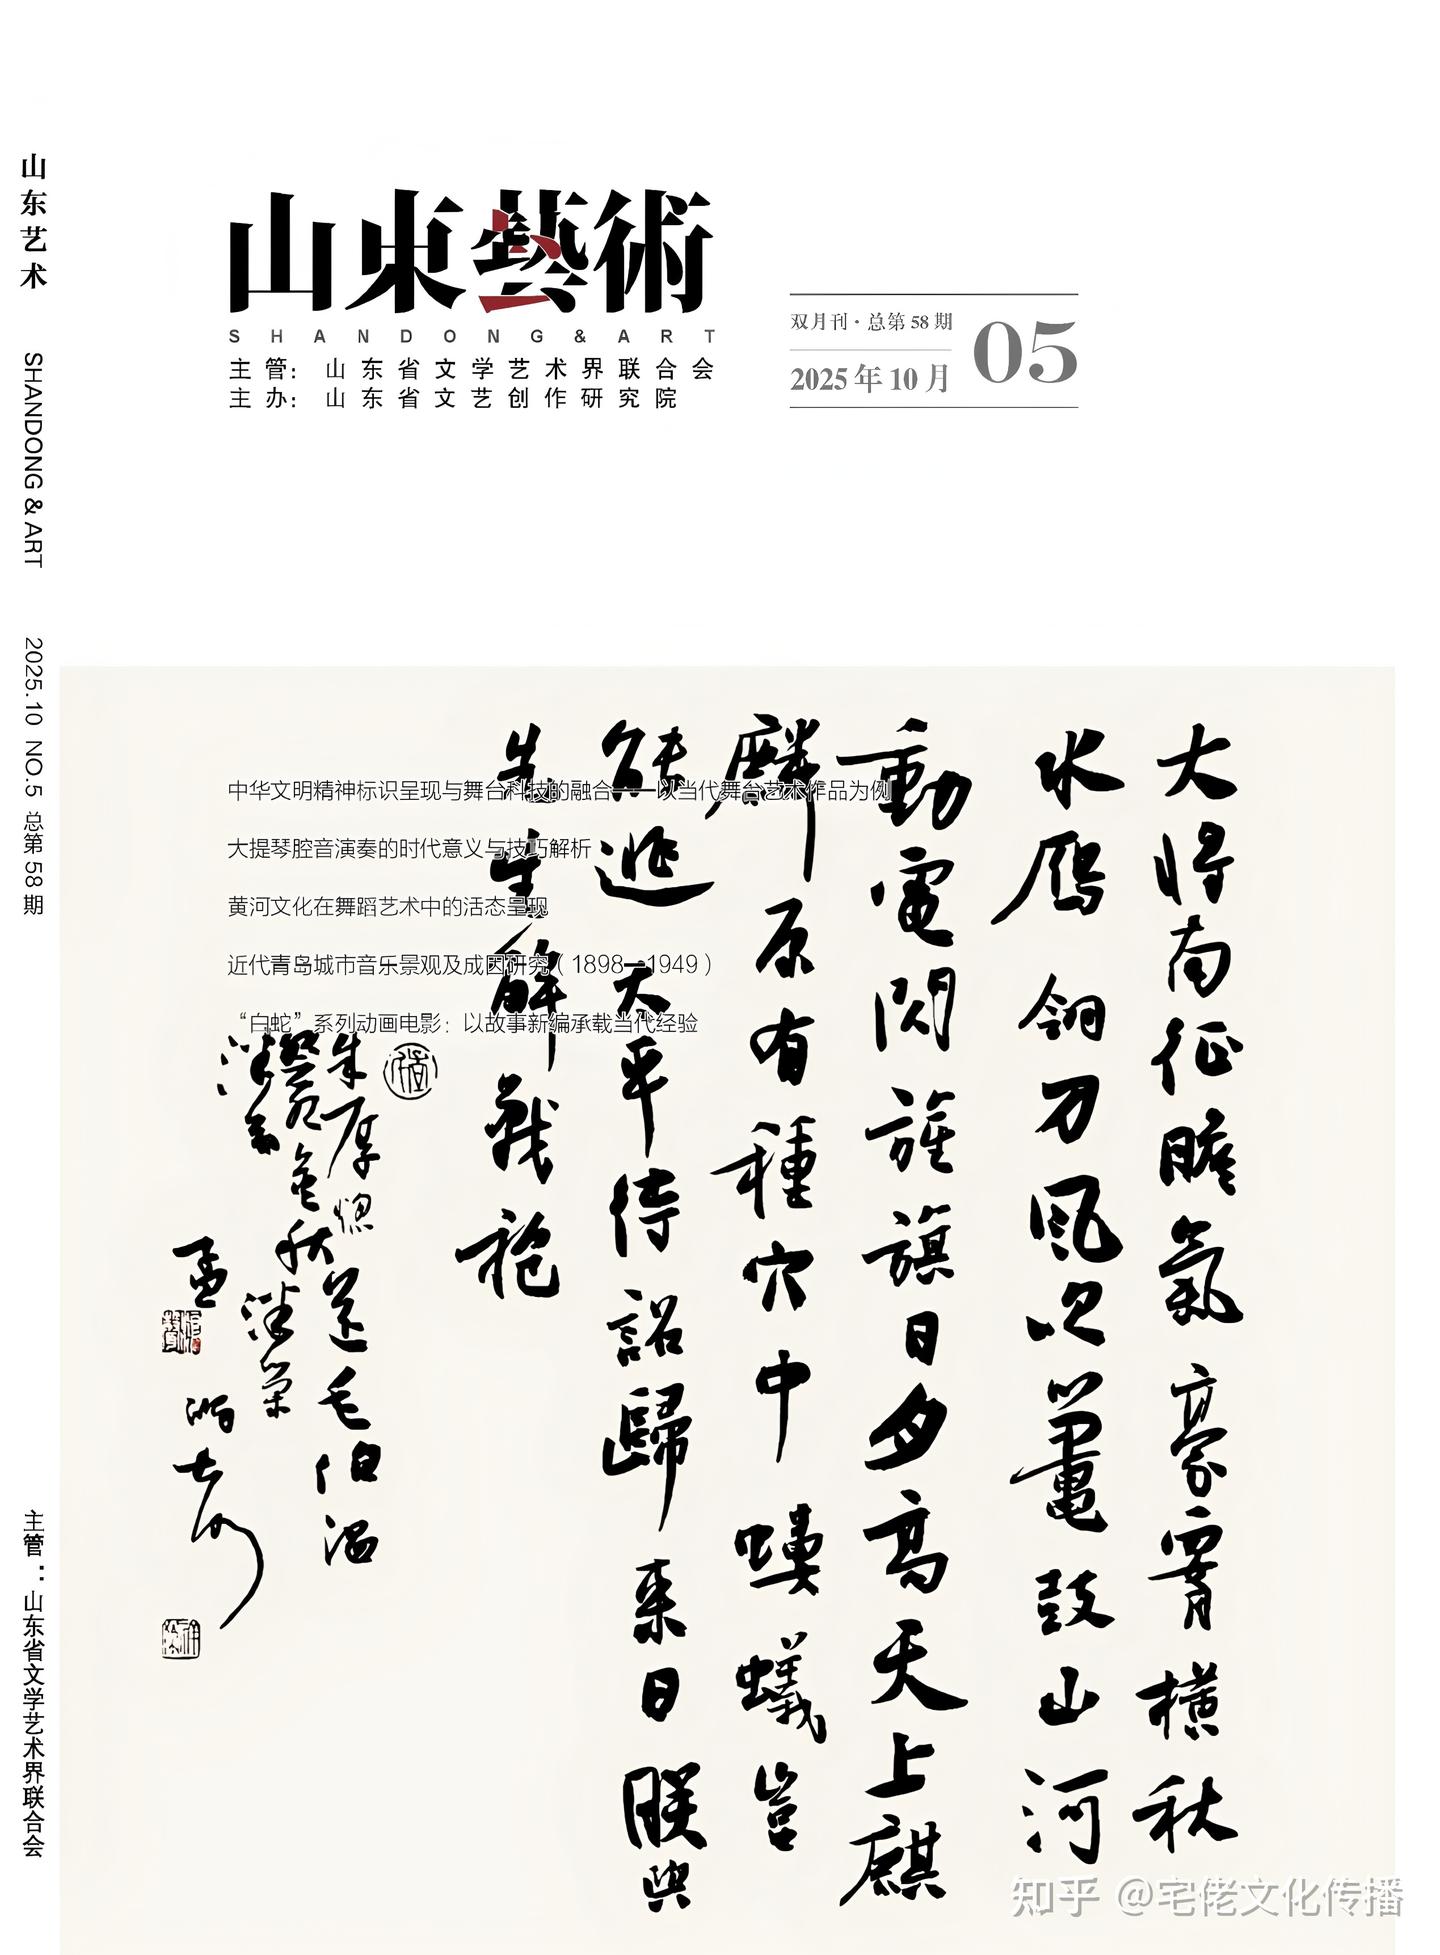 山东艺术 SHANDONG & ART 2025.10 NO.5 总第58期 主管：山东省文学艺术界联合会
山東藝術
SHANDONG & ART
主管：山东省文学艺术界联合会
主办：山东省文艺创作研究院
双月刊·总第58期
2025年10月
05
中华文明精神标识呈现与舞台科技的融合——以当代舞台艺术作品为例
大提琴腔音演奏的时代意义与技巧解析
黄河文化在舞蹈艺术中的活态呈现
近代青岛城市音乐景观及成因研究（1898—1949）
“白蛇”系列动画电影：以故事新编承载当代经验
大將南征膽氣豪腰橫秋
水鴈翎刀風吹鼉鼓山河
動電閃旌旗日月高天上麒
麟原有種穴中螻蟻豈
能逃太平待詔歸来日朕與
先生解戰袍
朱厚熜送毛伯温
知乎 @宅佬文化传播